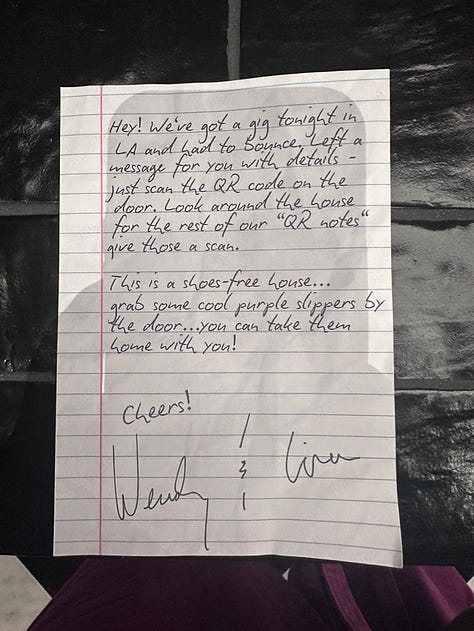 Hey! We've got a gig tonight in
LA and had to bounce. Left a
message for you with details -
just scan the QR code on the
door. Look around the house
for the rest of our "QR notes"
give those a scan.
This is a shoes-free house...
grab some cool purple slippers by
the door...you can take them
home with you!
Cheers!
Wendy & Lisa